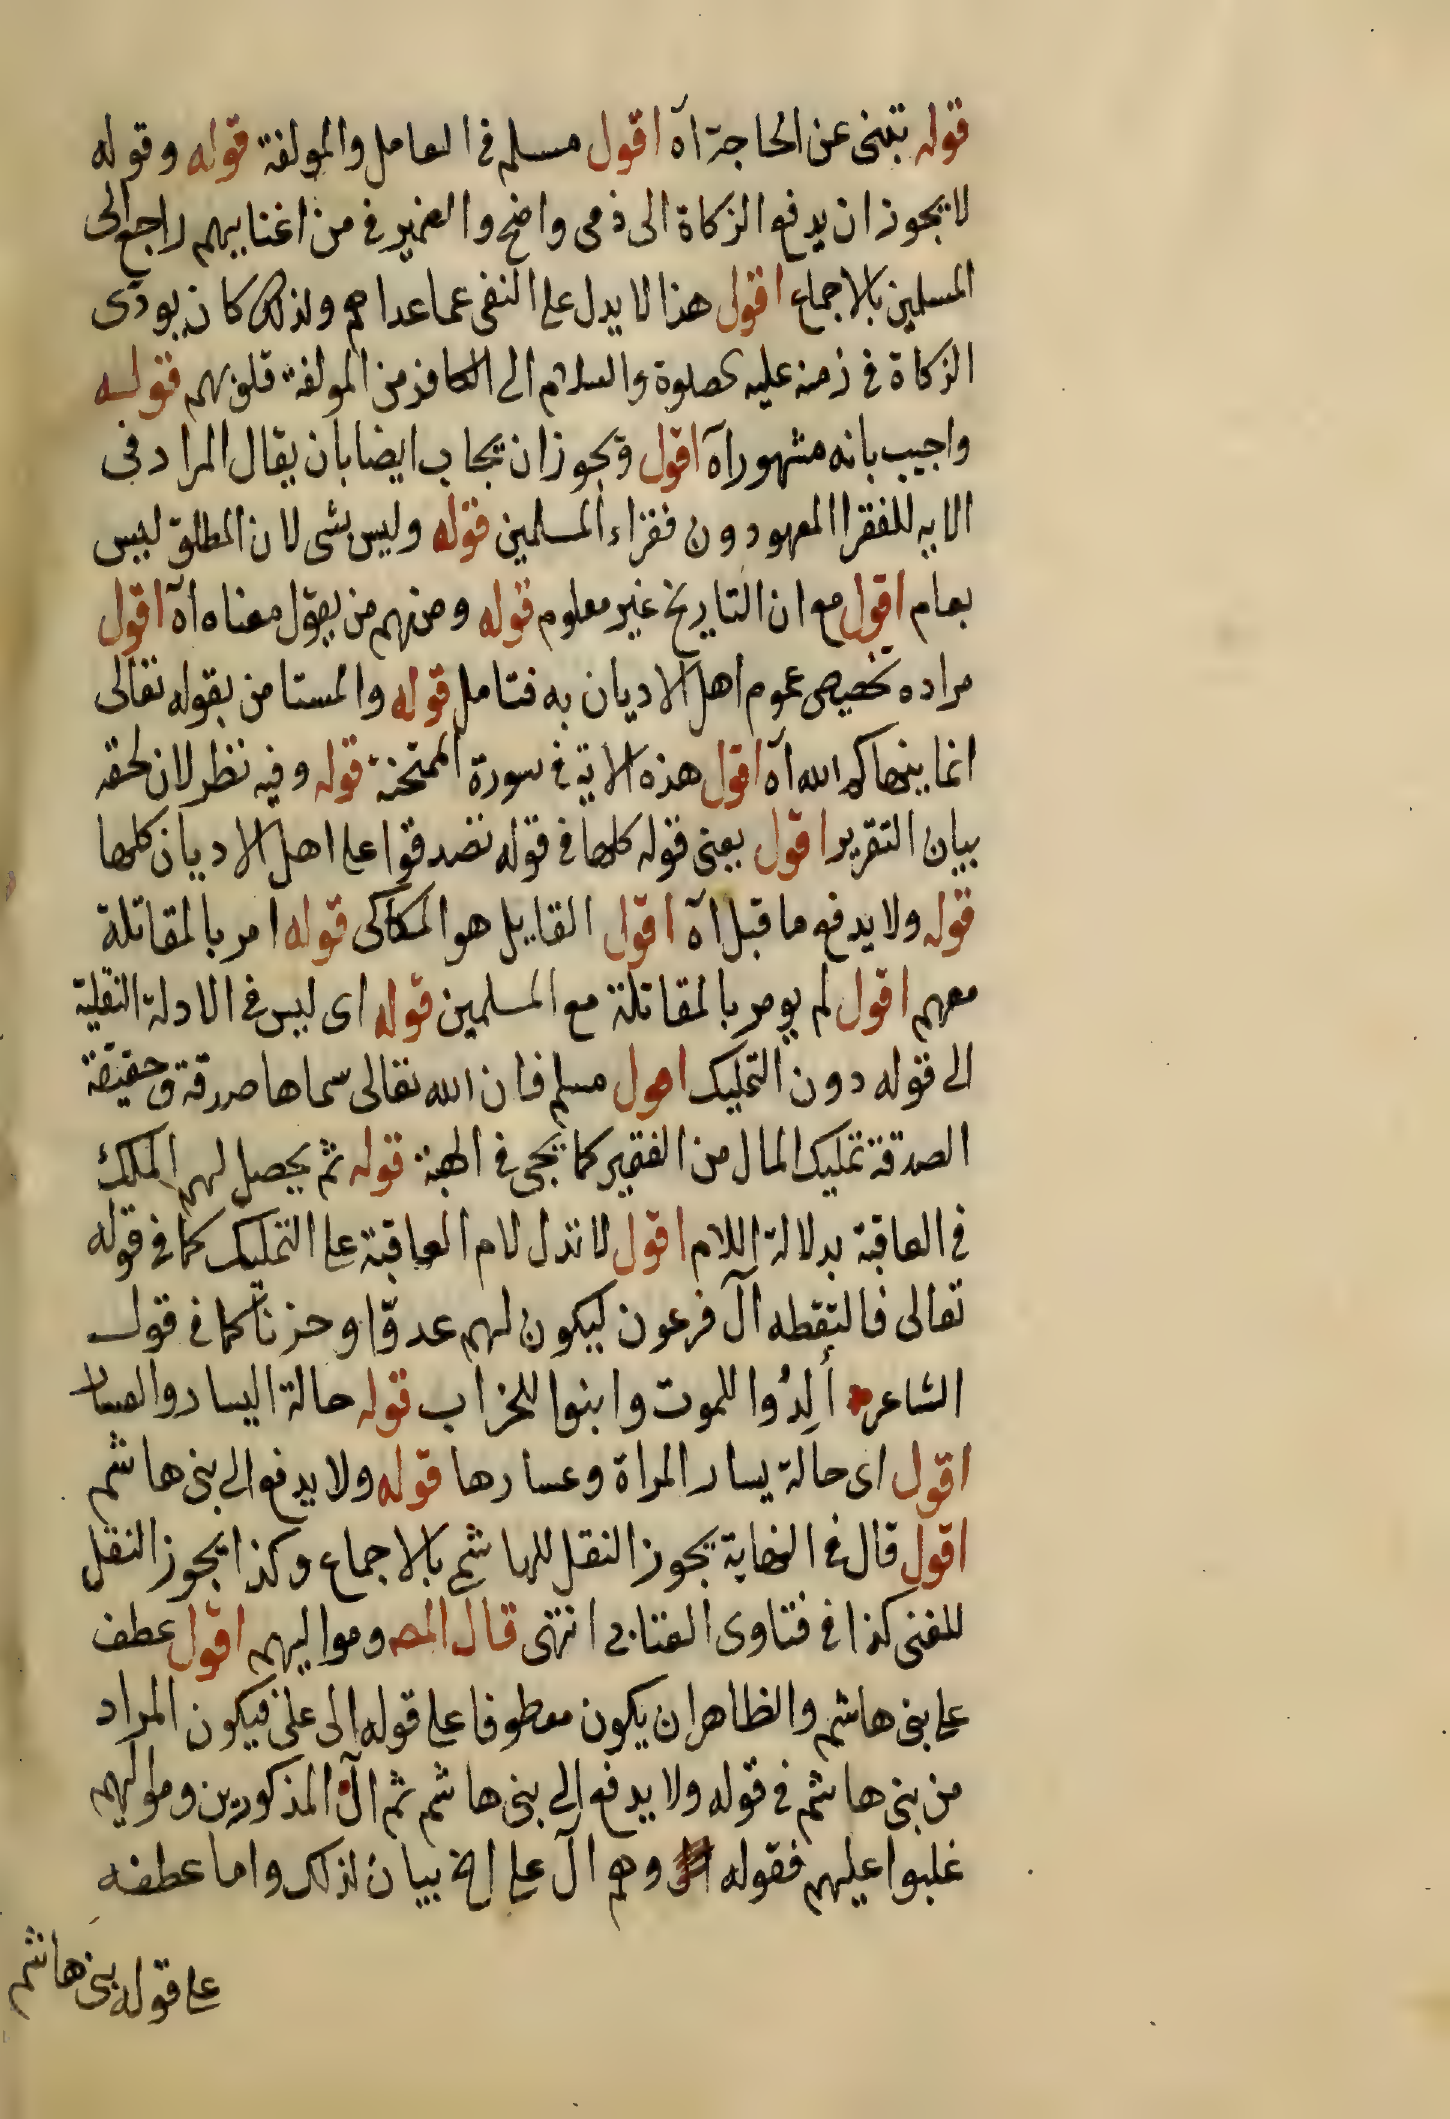 قوله تبنى عن الحاجة آه اقول مسلم فى العامل والمولفة قوله وقوله
لا يجوز ان يدفع الزكاة الى ذمى واضح والضمير فى من اغنيايهم راجع الى
المسلمين بالاجماع اقول هذا لا يدل على النفى عما عداهم ولذلك كان يودى
الزكاة فى زمنه عليه الصلوة والسلام الى الكافر من المولفة قلوبهم قوله
واجيب بانه مشهور آه اقول ويجوز ان يجاب ايضا بان يقال المراد فى
الايه للفقرا المعهودون فقراء المسلمين قوله وليس بشى لان المطلق ليس
بعام اقول مع ان التاريخ غير معلوم قوله ومنهم من يقول معناه آه اقول
مراده تخصيص عموم اهل الاديان به فتامل قوله والمستامن بقوله تعالى
انما ينهاكم الله آه اقول هذه الاية فى سورة الممتحنة قوله وفيه نظر لان لحقه
بيان التقرير اقول يعنى قوله كلها فى قوله تصدقوا على اهل الاديان كلها
قوله ولا يدفع ما قبل آه اقول القايل هو الكاكى قوله امر بالمقاتلة
معهم اقول لم يومر بالمقاتلة مع المسلمين قوله اى ليس فى الادلة النقلية
الى قوله دون التمليك اقول مسلم فان الله تعالى سماها صدقة وحقيقة
الصدقة تمليك المال من الفقير كما يجى فى الهبة قوله ثم يحصل لهم الملك
فى العاقبة بدلالة اللام اقول لا تدل لام العاقبة على التمليك كما فى قوله
تعالى فالتقطه آل فرعون ليكون لهم عدوّا وحزنا كما فى قول
الشاعر ألِدُوا للموت وابنوا للخراب قوله حالة اليسار والعسار
اقول اى حالة يسار المراة وعسارها قوله ولا يدفع الى بنى هاشم
اقول قال فى النهاية يجوز النفل للهاشمى بالاجماع وكذا يجوز النفل
للغنى كذا فى فتاوى العتابى انتهى قال المص ومواليهم اقول عطف
على بنى هاشم والظاهر ان يكون معطوفا على قوله الى على فيكون المراد
من بنى هاشم فى قوله ولا يدفع الى بنى هاشم ثم آل المذكورين ومواليهم
غلبوا عليهم فقوله وهم آل على الخ بيان لذلك واما عطفه
على قوله بنى هاشم